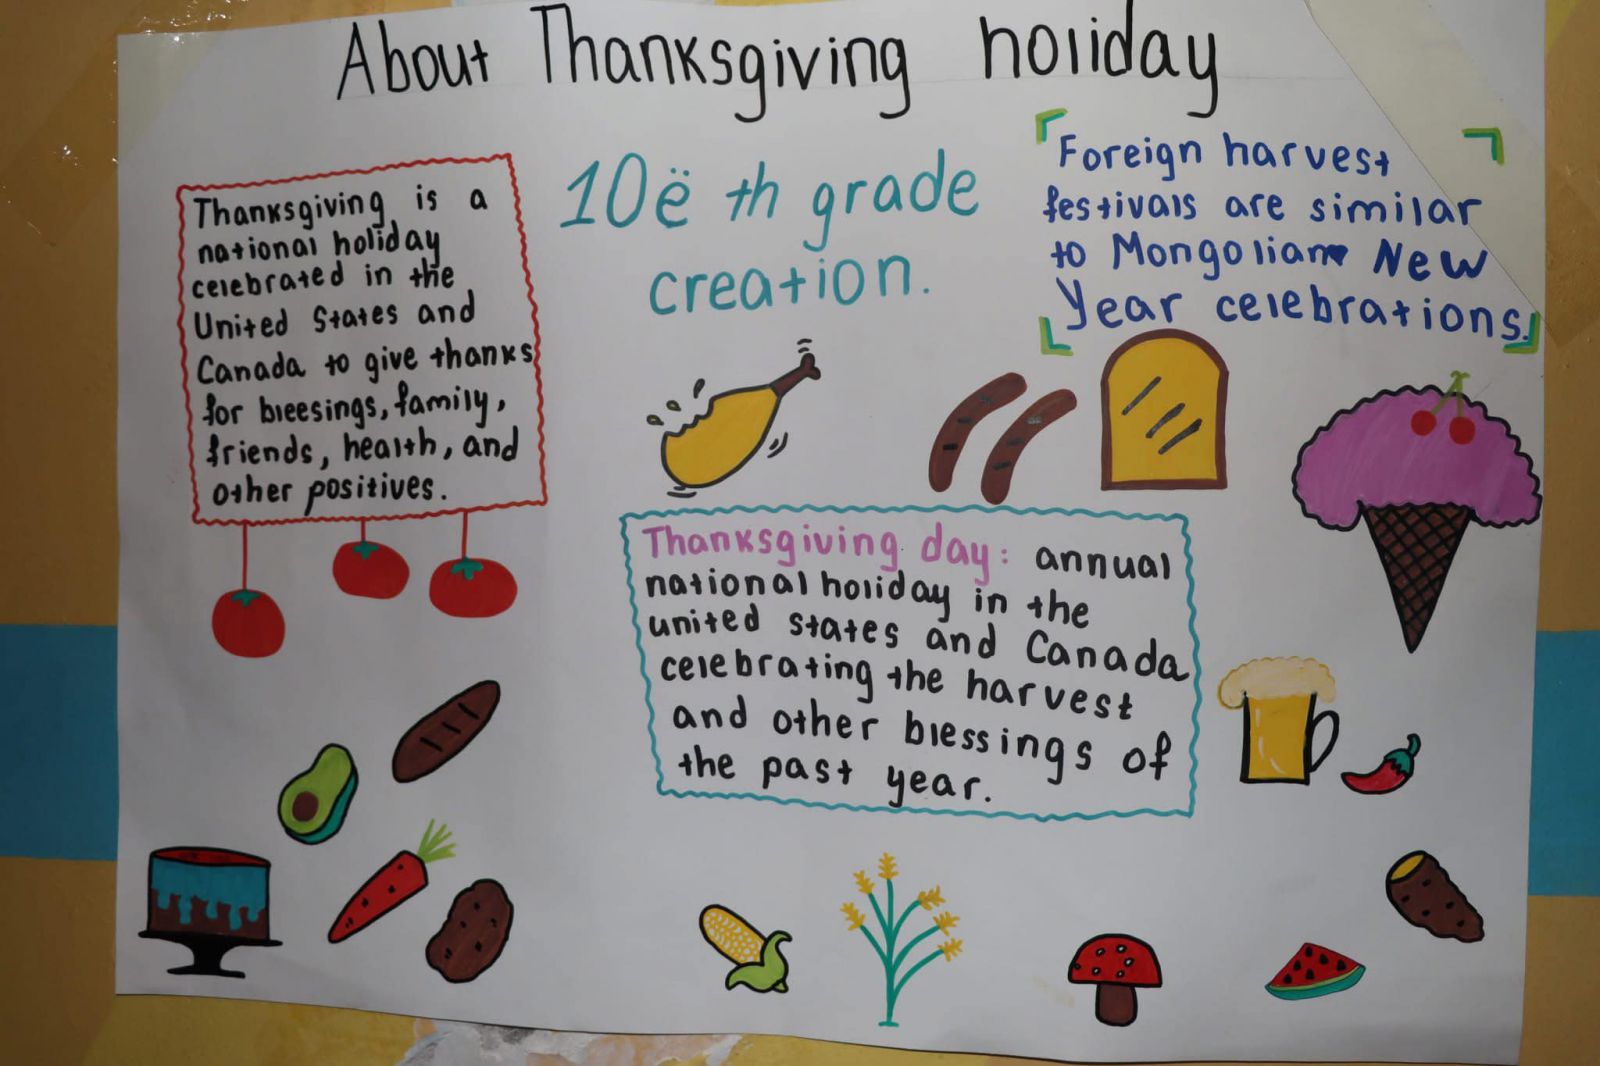 About Thanksgiving holiday
Thanksgiving is a
national holiday
celebrated in the
United States and
Canada to give thanks
for bleesings, family,
friends, health, and
other positives.
10ë th grade
creation.
Foreign harvest
festivals are similar
to Mongolian New
Year celebrations.
Thanksgiving day: annual
national holiday in the
united states and Canada
celebrating the harvest
and other blessings of
the past year.